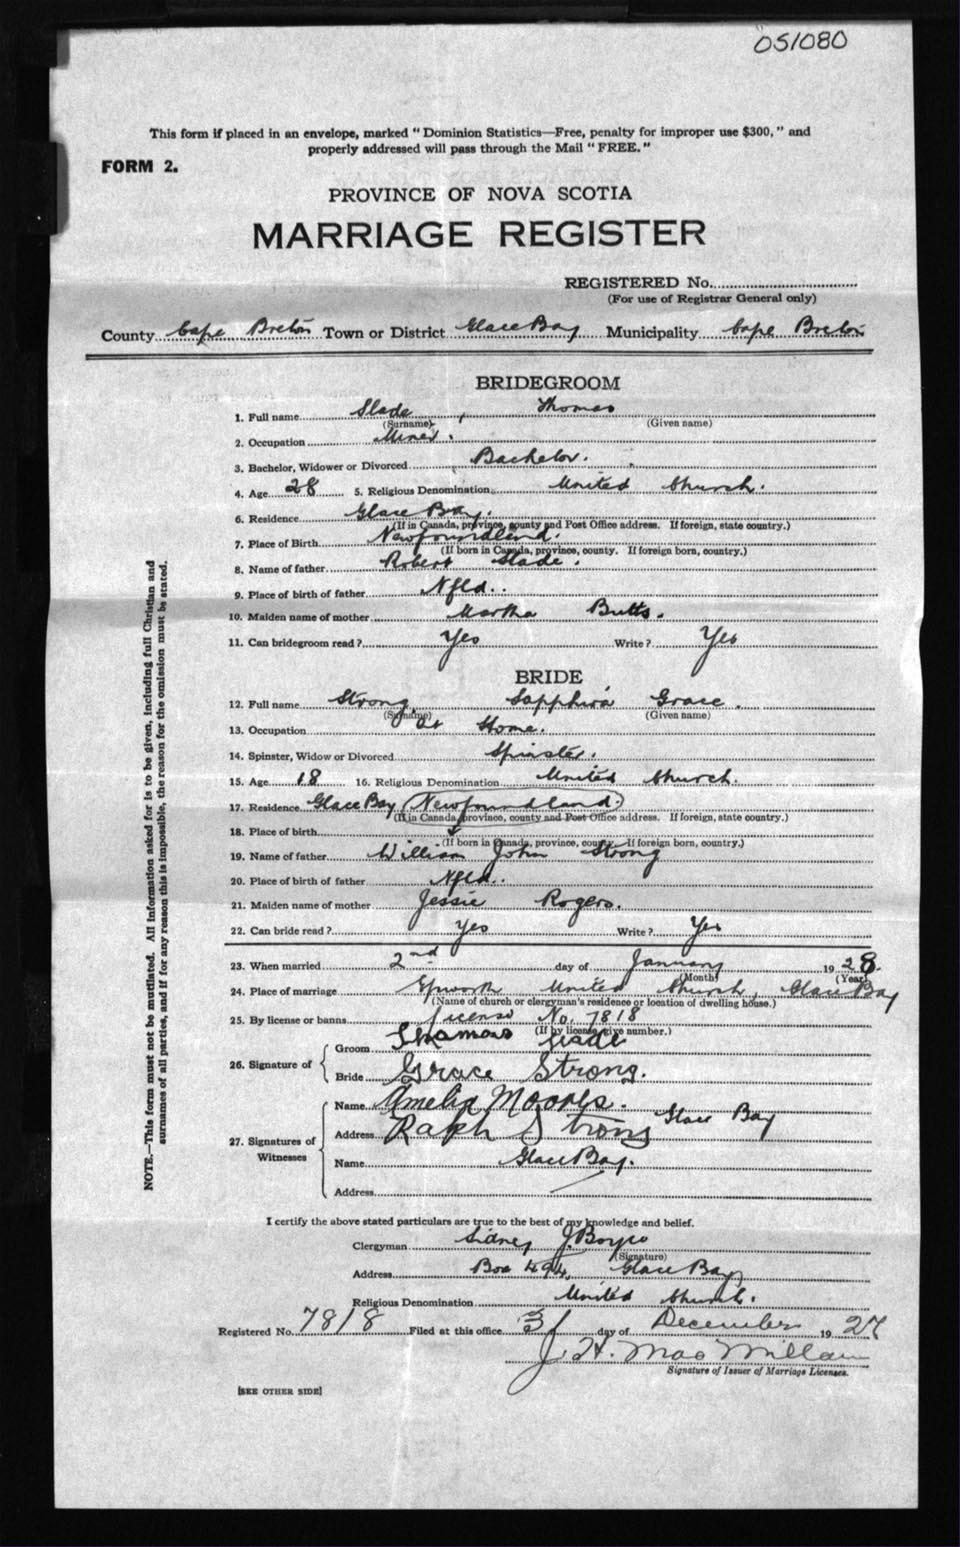 051080
This form if placed in an envelope, marked "Dominion Statistics—Free, penalty for improper use $300," and
properly addressed will pass through the Mail "FREE."
FORM 2.
PROVINCE OF NOVA SCOTIA
MARRIAGE REGISTER
REGISTERED No.
(For use of Registrar General only)
County Cape Breton Town or District Glace Bay Municipality Cape Breton
BRIDEGROOM
1. Full name Slade, Thomas
(Surname) (Given name)
2. Occupation Miner.
3. Bachelor, Widower or Divorced Bachelor.
4. Age 28 5. Religious Denomination United Church.
6. Residence Glace Bay.
(If in Canada, province, county and Post Office address. If foreign, state country.)
7. Place of Birth Newfoundland.
(If born in Canada, province, county. If foreign born, country.)
8. Name of father Robert Slade.
9. Place of birth of father Nfld.
10. Maiden name of mother Martha Butts.
11. Can bridegroom read? Yes Write? Yes
BRIDE
12. Full name Strong, Sapphira Grace.
(Surname) (Given name)
13. Occupation At Home.
14. Spinster, Widow or Divorced Spinster.
15. Age 18 16. Religious Denomination United Church.
17. Residence Glace Bay (Newfoundland.)
(If in Canada, province, county and Post Office address. If foreign, state country.)
18. Place of birth
(If born in Canada, province, county. If foreign born, country.)
19. Name of father William John Strong
20. Place of birth of father Nfld.
21. Maiden name of mother Jessie Rogers.
22. Can bride read? Yes Write? Yes
23. When married 2nd day of January 1928.
(Month) (Year)
24. Place of marriage Epworth United Church, Glace Bay
(Name of church or clergyman's residence or location of dwelling house.)
25. By license or banns License No. 7818
(If by license give number.)
26. Signature of
Groom Thomas Slade
Bride Grace Strong.
27. Signatures of Witnesses
Name Amelia Moores.
Glace Bay
Address Ralph Strong
Name Glace Bay.
Address
NOTE.—This form must not be mutilated. All information asked for is to be given, including full Christian and
surnames of all parties, and if for any reason this is impossible, the reason for the omission must be stated.
I certify the above stated particulars are true to the best of my knowledge and belief.
Clergyman Sidney J. Boyce
(Signature)
Address Box 494, Glace Bay
Religious Denomination United Church.
Registered No. 7818 Filed at this office 31 day of December 1927
J. H. MacMillan
Signature of Issuer of Marriage Licenses.
[SEE OTHER SIDE]